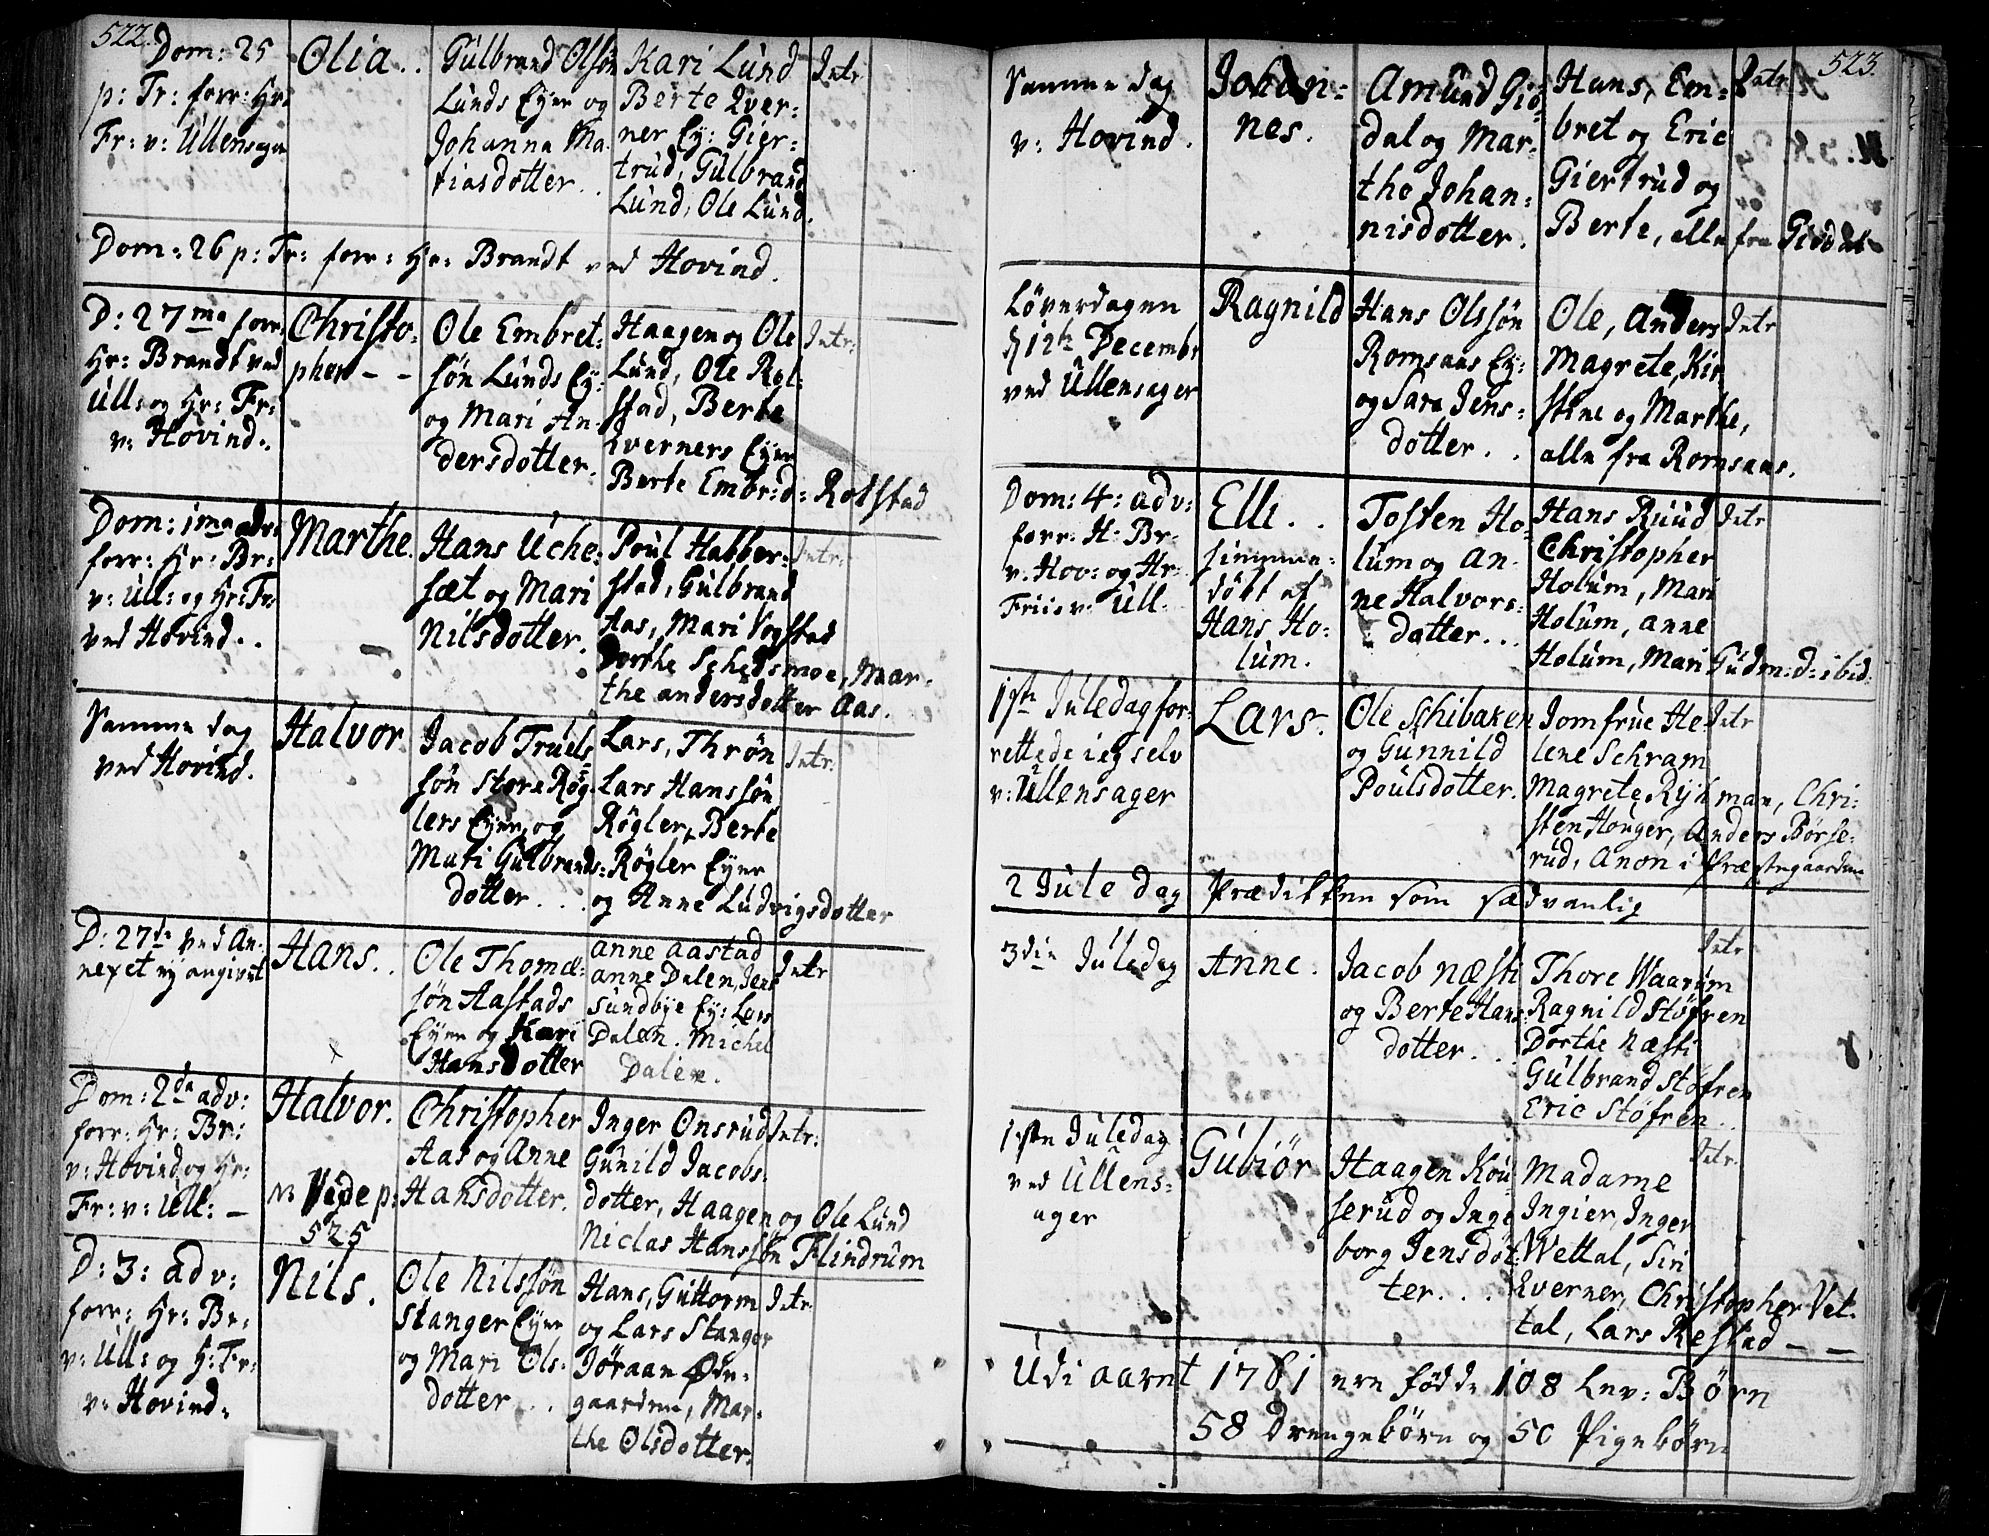 522.
Dom: 25
p: Tr: forr: Hr:
Fr: v: Ullensager
Olia..
Gulbrand Olsøn
Lunds Eyer og
Johanna Ma-
tiasdotter..
Kari Lund
Berte Qver:
ner Ey: Gier:
trud, Gulbrand
Lund, Ole Lund.
Intr:
Dom: 26 p: Tr: forr: Hr: Brandt ved Hovind.
D: 27ma forr:
Hr: Brandt ved
Ull: og Hr: Fr:
v: Hovind.
Christo:
pher - -
Ole Embret:
søn Lunds Ey:
og Mari An-
dersdotter.
Haagen og Ole
Lund, Ole Rol-
stad, Berte
Qverners Eyer
Berte Embr: d: Rolstad
Intr:
Dom: 1ma adv:
forr: Hr: Br:
v: Ull: og Hr: Fr:
ved Hovind..
Marthe.
Hans Uche:
sæt og Mari
Nilsdotter.
Poul Habber:
stad, Gulbrand
Aas, Mari Vogstad
Dorthe Schedsmoe, Mar-
the andersdotter Aas.
Intr:
Samme dag
ved Hovind.
Halvor
Jacob Truels
søn Store Røg-
lers Eyer, og
Mari Gulbrands:
dotter....
Lars, Thrøn
Lars Hanssøn
Røgler, Berte
Røgler Eyer
og Anne Ludvigsdotter
Intr:
D: 27de ved An-
nexet ny angivet
Hans..
Ole Thomæ:
søn Aastads
Eyer og Kari
Hansdotter
anne aastad
anne Dalen, Jens
Sundbye Ey: Lars
Dalen. Michel
Dalen.
Intr
Dom: 2da adv:
forr: Hr: Br:
v: Hovind og Hr:
Fr: v: Ull: -
Halvor.
Vide p:
525
Christopher
Aas og Anne
Hansdotter.
Inger Onsrud
Gunild Jacobs-
dotter, Haagen og Ole Lund
Niclas Hanssøn Flindrum
Intr:
D: 3: adv:
forr: Hr: Br:
v: Ull: og H: Fr:
v: Hovind.
Nils.
Ole Nilssøn
Stanger Eyer
og Mari Ols-
dotter...
Hans, Guttorm
og Lars Stanger
Jøraan Øde-
gaarden, Mar-
the Olsdotter.
Intr:
523.
Samme dag
v: Hovind.
Johan:
nes.
Amund Gis
dal og Mar:
the Johan:
nisdotter.
Hans, Em:
bret og Eric
Giertrud og
Berte, alle fra Gisdal
Intr
Løverdagen
d 12te Decembr
ved Ullensager
Ragnild
Hans Olssøn
Romsaas Ey:
og Sara Jens:
dotter..
Ole, Anders
Magrete, Kir
stine og Marthe,
alle fra Romsaas.
Intr
Dom: 4: adv:
forr: H: Br:
v: Hov: og Hr:
Friis v: Ull.
Elle..
himme-
døbt af
Hans Ho:
lum.
Tosten Ho-
lum og An-
ne Halvors:
datter...
Hans Ruud
Christopher
Holum, Mari
Holum, anne
Holum, Mari Gudm: d: ibid.
Intr
1ste Juledag for-
rettede ieg selv
v: Ullensager
Lars.
Ole Schibaken
og Gunnild
Poulsdotter.
Jomfrue He-
lene Schram
Magrete Rykman, Chri:
sten Houger, Anders Børse:
rud, Anon i Præstegaarden
Intr
2 Jule dag Prædikken som sædvanlig
3die Juledag
Anne.
Jacob Næsti
og Berte Hans
dotter..
Thore Waarum
Ragnild Støfren
Dorthe Næsti
Gulbrand Støfren
Eric Støfren..
Intr
1ste Juledag
ved Ullens-
ager
Gubiør
Haagen Kou-
serud og Inge
borg Jensdot
ter...
Madame
Ingier, Inger
Wettal, Siri
Qverner, Christopher Vet-
tal, Lars Restad - -
Intr.
Udi aaret 1781 ere fødde 108 Lev: Børn
58 Drengebørn og 50 Pigebørn